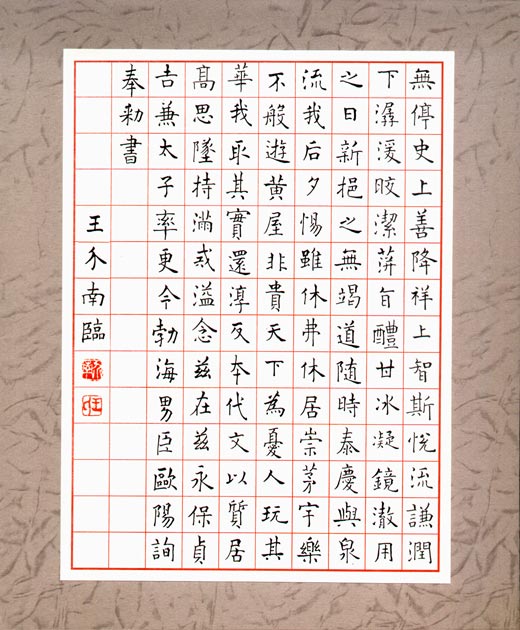 無停史上善降祥上智斯悅流謙潤
下潺湲晈潔蓱旨醴甘冰凝鏡澈用
之日新挹之無竭道随時泰慶與泉
流我后夕惕雖休弗休居崇茅宇樂
不般遊黃屋非貴天下為憂人玩其
華我取其實還淳反本代文以質居
髙思墜持滿戒溢念茲在茲永保貞
吉兼太子率更令勃海男臣歐陽詢
奉勑書
王介南臨